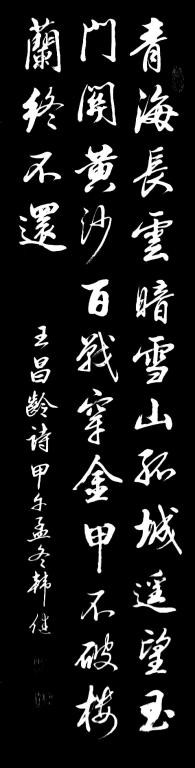 青海長雲暗雪山孤城遥望玉
門関黄沙百戰穿金甲不破楼
蘭終不還
王昌齡詩甲午孟冬韩继